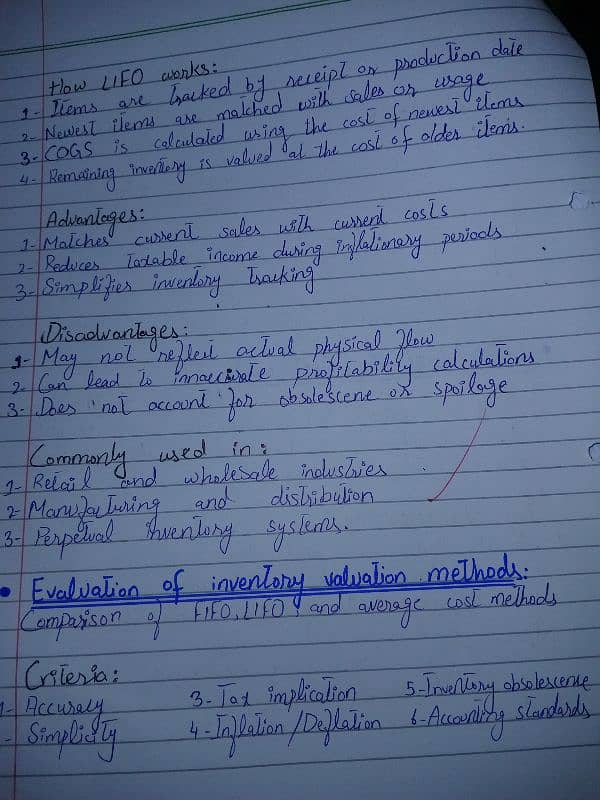 How LIFO works:
1- Items are tracked by receipt or production date
2- Newest items are matched with sales or usage
3- COGS is calculated using the cost of newest items
4- Remaining inventory is valued at the cost of older items.
Advantages:
1- Matches current sales with current costs
2- Reduces taxable income during inflationary periods
3- Simplifies inventory tracking
Disadvantages:
1- May not reflect actual physical flow
2- Can lead to innaccurate profitability calculations
3- Does not account for obsolescene or spoilage
Commonly used in:
1- Retail and wholesale industries
2- Manufacturing and distribution
3- Perpetual inventory systems.
• Evaluation of inventory valuation methods:
Comparison of FIFO, LIFO, and average cost methods
Criteria:
1- Accuracy 3- Tax implication 5- Inventory obsolescence
- Simplicity 4- Inflation/Deflation 6- Accounting standards